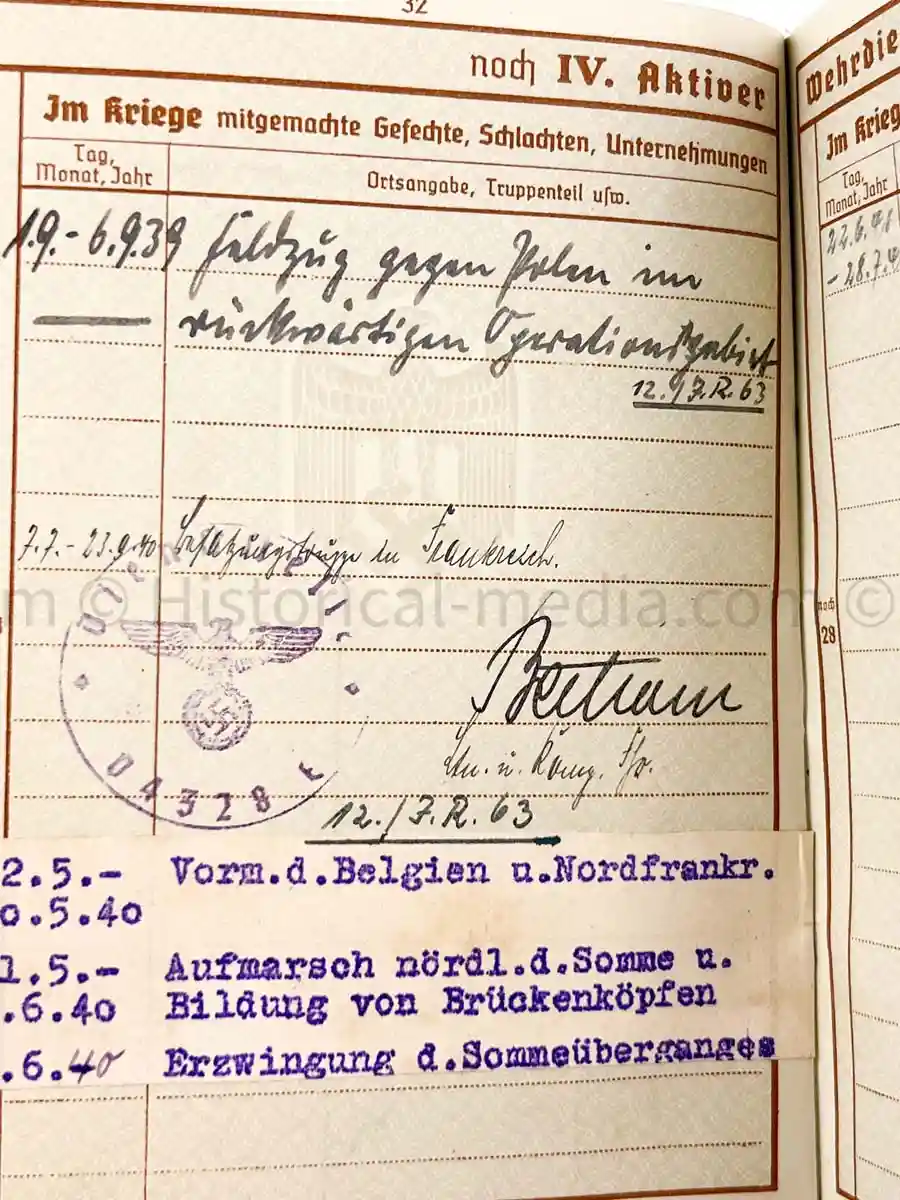 32
noch IV. Aktiver
Wehrdie
Im Kriege mitgemachte Gefechte, Schlachten, Unternehmungen
Im Krieg
Tag,
Monat, Jahr
Ortsangabe, Truppenteil usw.
Tag,
Monat, Jahr
1.9.- 6.9.39 Feldzug gegen Polen im
rückwärtigen Operationsgebiet
12./J.R. 63
22.6.41
- 28.7.4
7.7.- 23.9.40 Besatzungstruppe in Frankreich.
m © Historical-media.com ©
noch
28
D 4328 E
Ltn. u. Komp. Fhr.
12./J.R. 63
2.5.- Vorm.d.Belgien u.Nordfrankr.
0.5.40
1.5.- Aufmarsch nördl.d.Somme u.
.6.40 Bildung von Brückenköpfen
.6.40 Erzwingung d.Sommeüberganges